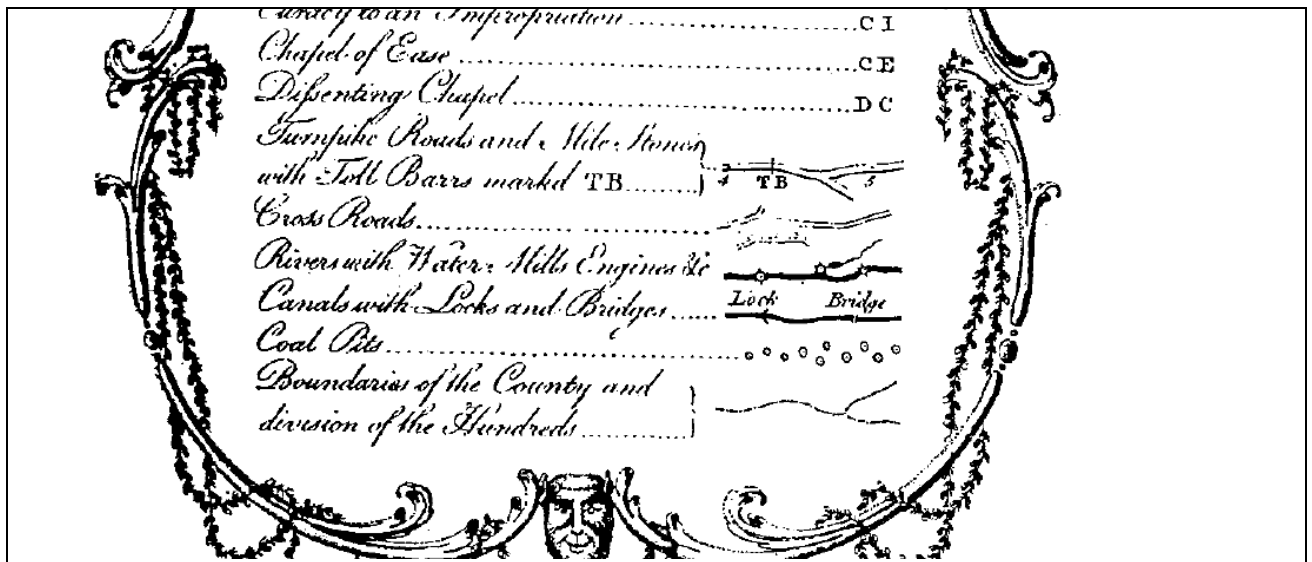 Curacy to an Impropriation..............................C I
Chapel of Ease..............................C E
Dissenting Chapel..............................D C
Turnpike Roads and Mile Stones
with Toll Barrs markd TB.......... 4 TB 5
Cross Roads..............................
Rivers with Water Mills Engines &c
Canals with Locks and Bridges...... Lock Bridge
Coal Pits..............................
Boundaries of the County and
division of the Hundreds..............